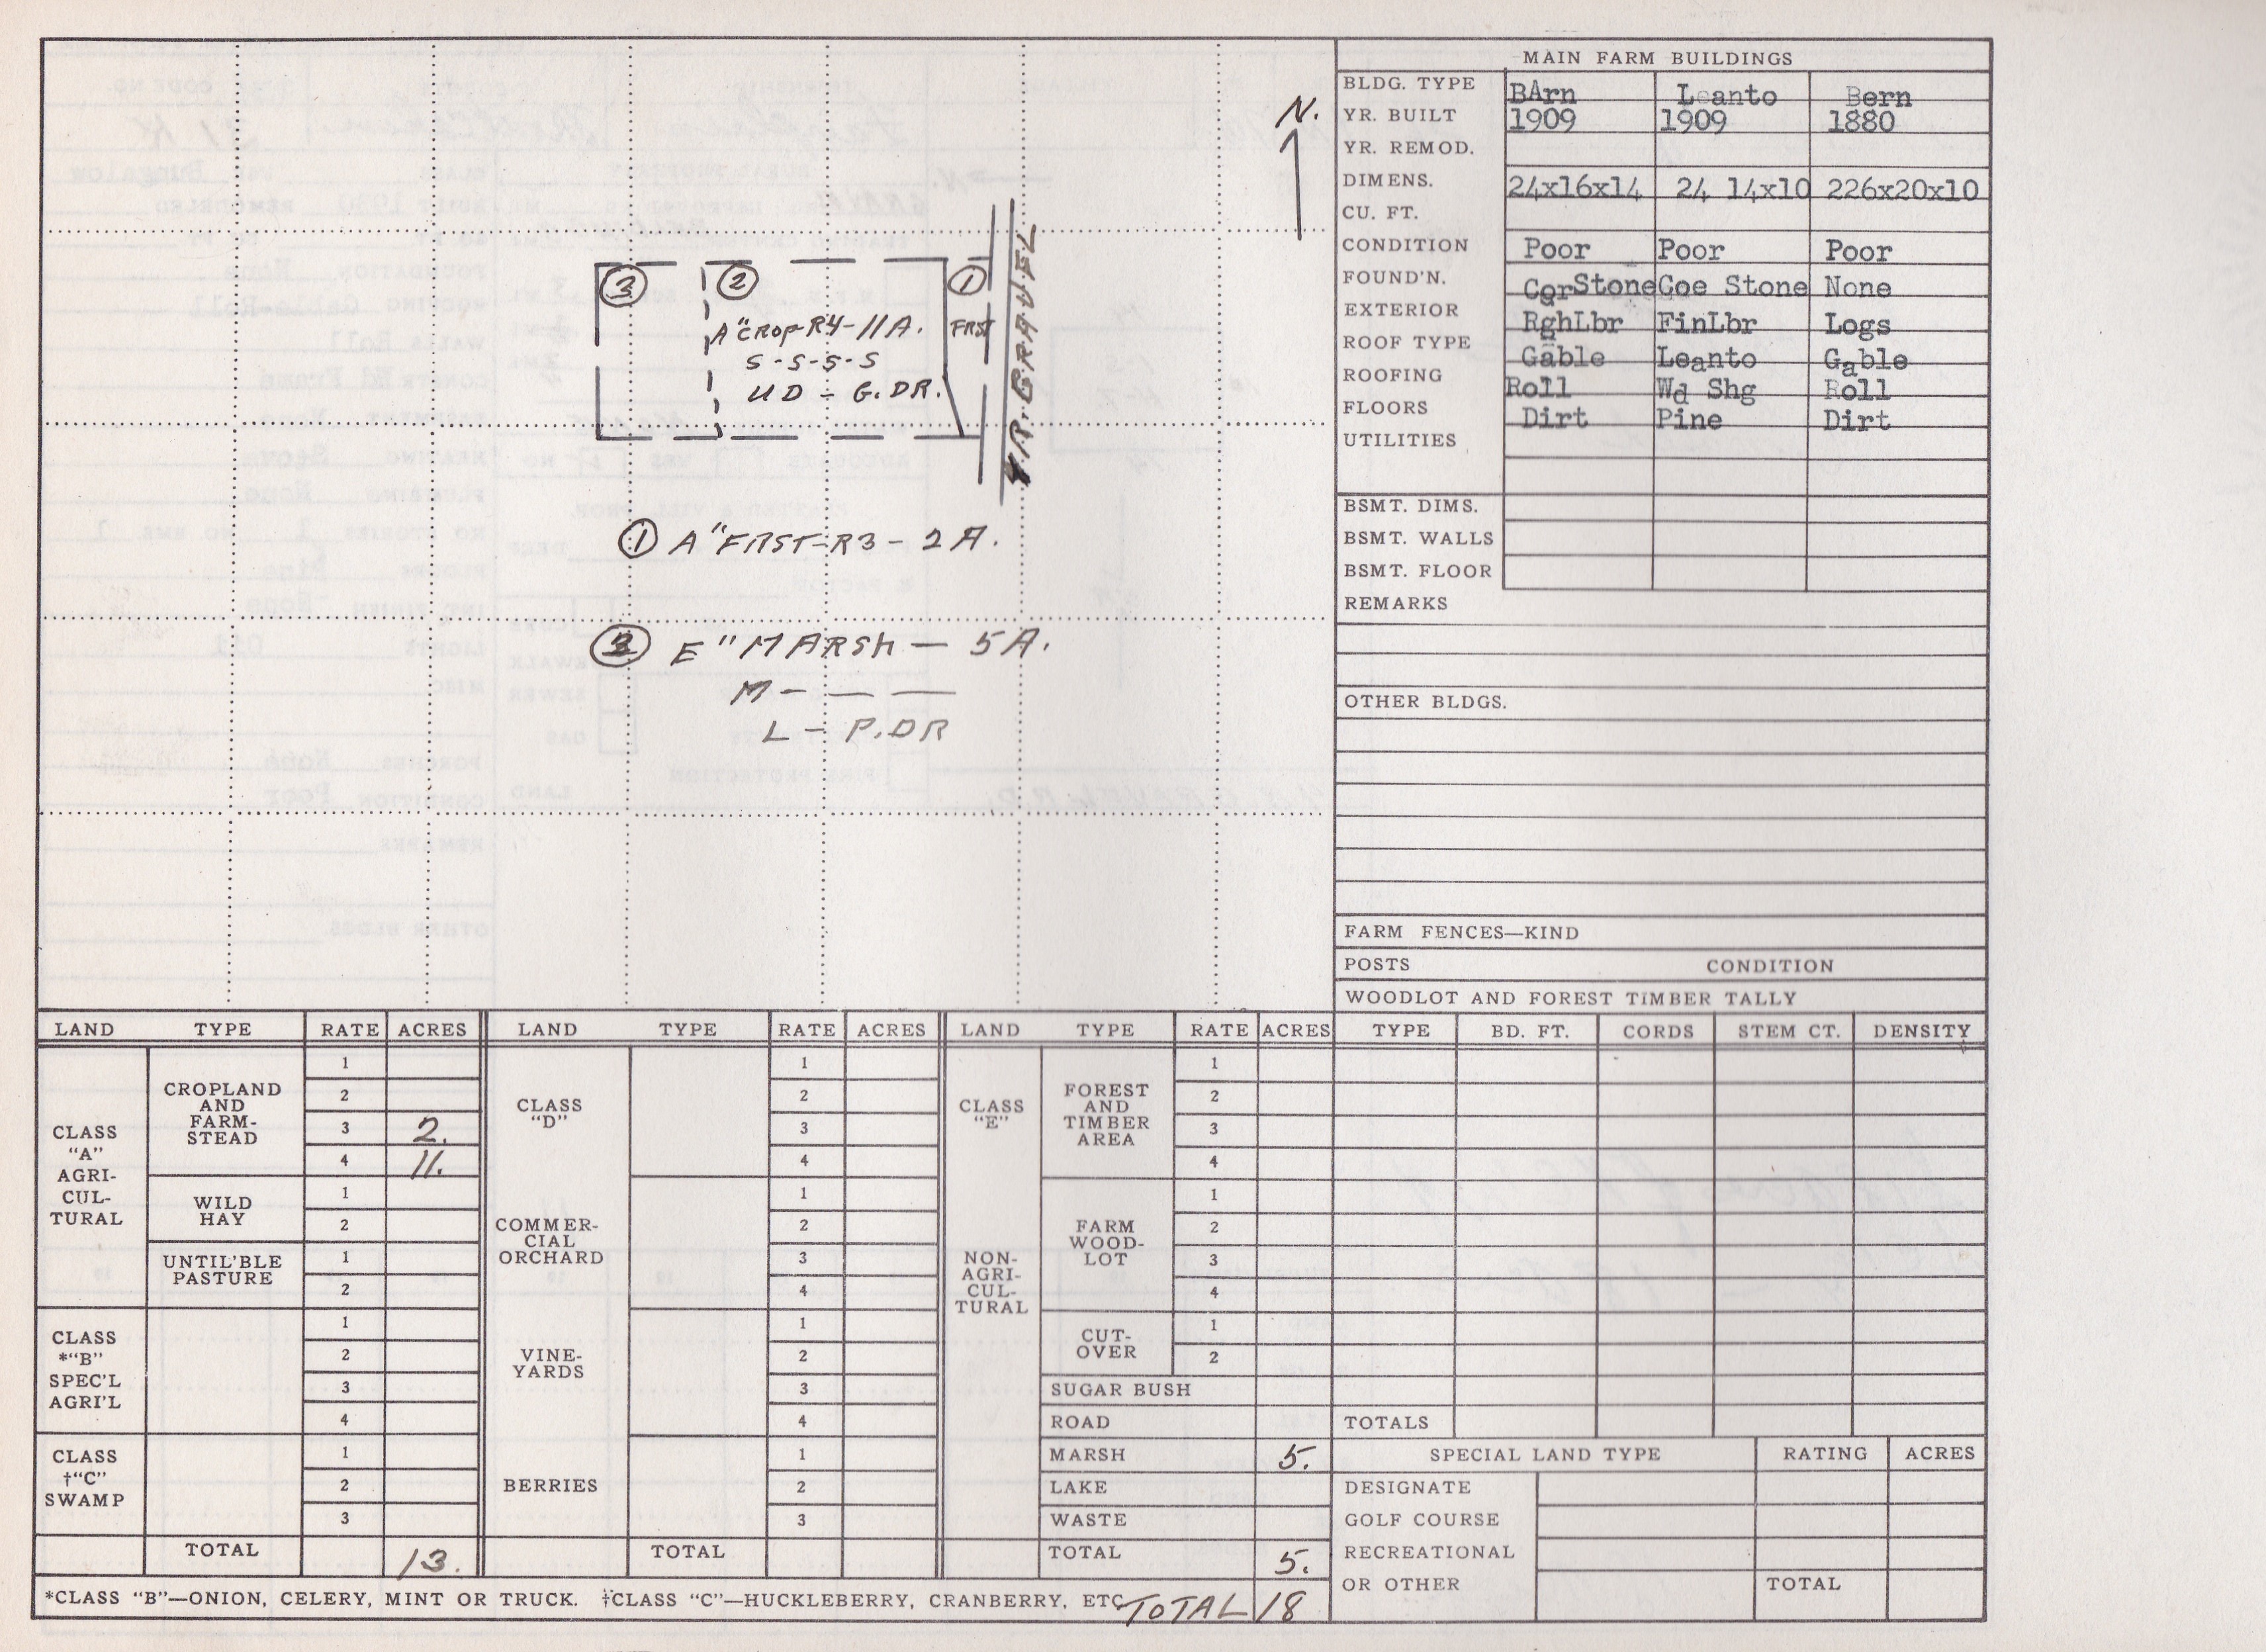 N.
③ ② ①
A"CROP R4-11A. FRST
S-S-S-S
UD - G.DR.
YR. GRAVEL
① A"FRST-R3-2A.
③ E"MARSH - 5A.
M- — —
L - P.DR
MAIN FARM BUILDINGS
BLDG. TYPE BArn Leanto Bern
YR. BUILT 1909 1909 1880
YR. REMOD.
DIMENS. 24x16x14 24 14x10 226x20x10
CU. FT.
CONDITION Poor Poor Poor
FOUND'N. CorStone Coe Stone None
EXTERIOR RghLbr FinLbr Logs
ROOF TYPE Gable Leanto Gable
ROOFING Roll Wd Shg Roll
FLOORS Dirt Pine Dirt
UTILITIES
BSMT. DIMS.
BSMT. WALLS
BSMT. FLOOR
REMARKS
OTHER BLDGS.
FARM FENCES—KIND
POSTS CONDITION
WOODLOT AND FOREST TIMBER TALLY
TYPE BD. FT. CORDS STEM CT. DENSITY
TOTALS
SPECIAL LAND TYPE RATING ACRES
DESIGNATE
GOLF COURSE
RECREATIONAL
OR OTHER TOTAL
LAND TYPE RATE ACRES
CLASS
"A"
AGRI-
CUL-
TURAL
CROPLAND
AND
FARM-
STEAD
1
2
3 2.
4 11.
WILD
HAY
1
2
UNTIL'BLE
PASTURE
1
2
CLASS
*"B"
SPEC'L
AGRI'L
1
2
3
4
CLASS
†"C"
SWAMP
1
2
3
TOTAL 13.
LAND TYPE RATE ACRES
CLASS
"D"
1
2
3
4
COMMER-
CIAL
ORCHARD
1
2
3
4
VINE-
YARDS
1
2
3
4
BERRIES
1
2
3
TOTAL
LAND TYPE RATE ACRES
CLASS
"E"
NON-
AGRI-
CUL-
TURAL
FOREST
AND
TIMBER
AREA
1
2
3
4
FARM
WOOD-
LOT
1
2
3
4
CUT-
OVER
1
2
SUGAR BUSH
ROAD
MARSH 5.
LAKE
WASTE
TOTAL 5.
*CLASS "B"—ONION, CELERY, MINT OR TRUCK. †CLASS "C"—HUCKLEBERRY, CRANBERRY, ETC. TOTAL 18